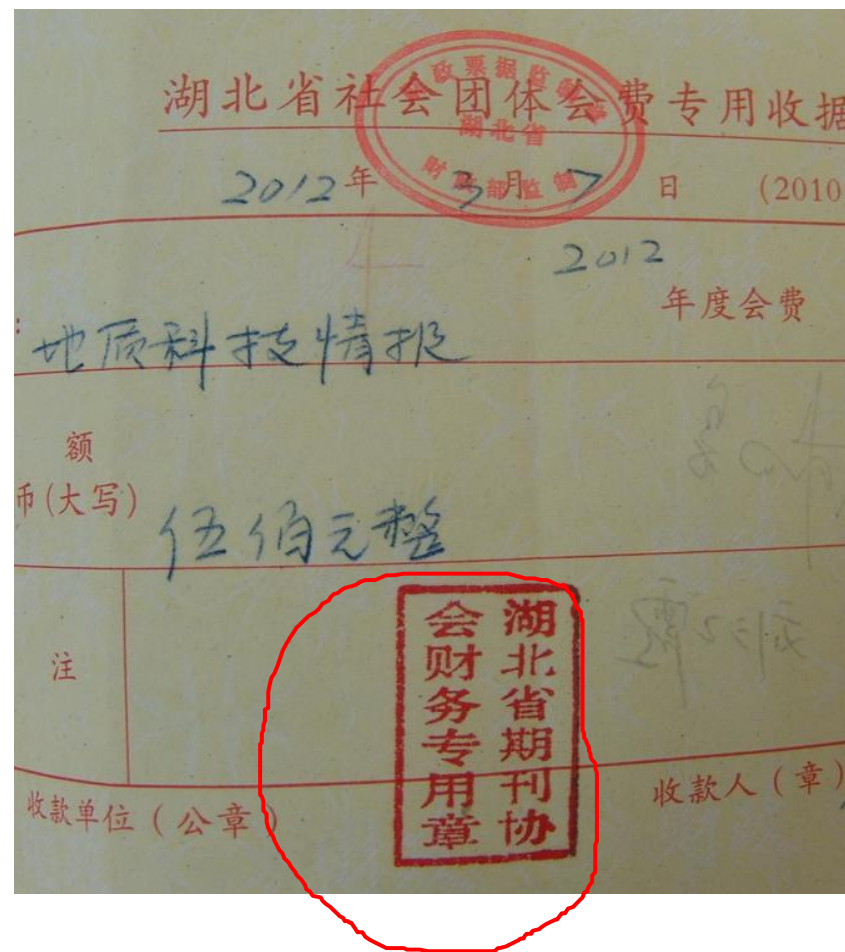 湖北省社会团体会费专用收据
湖北省
2012年 3月 7日 (2010
2012
年度会费
:地质科技情报
额
币(大写)
伍佰元整
注
湖北省期刊协
会财务专用章
收款单位(公章)
收款人(章)